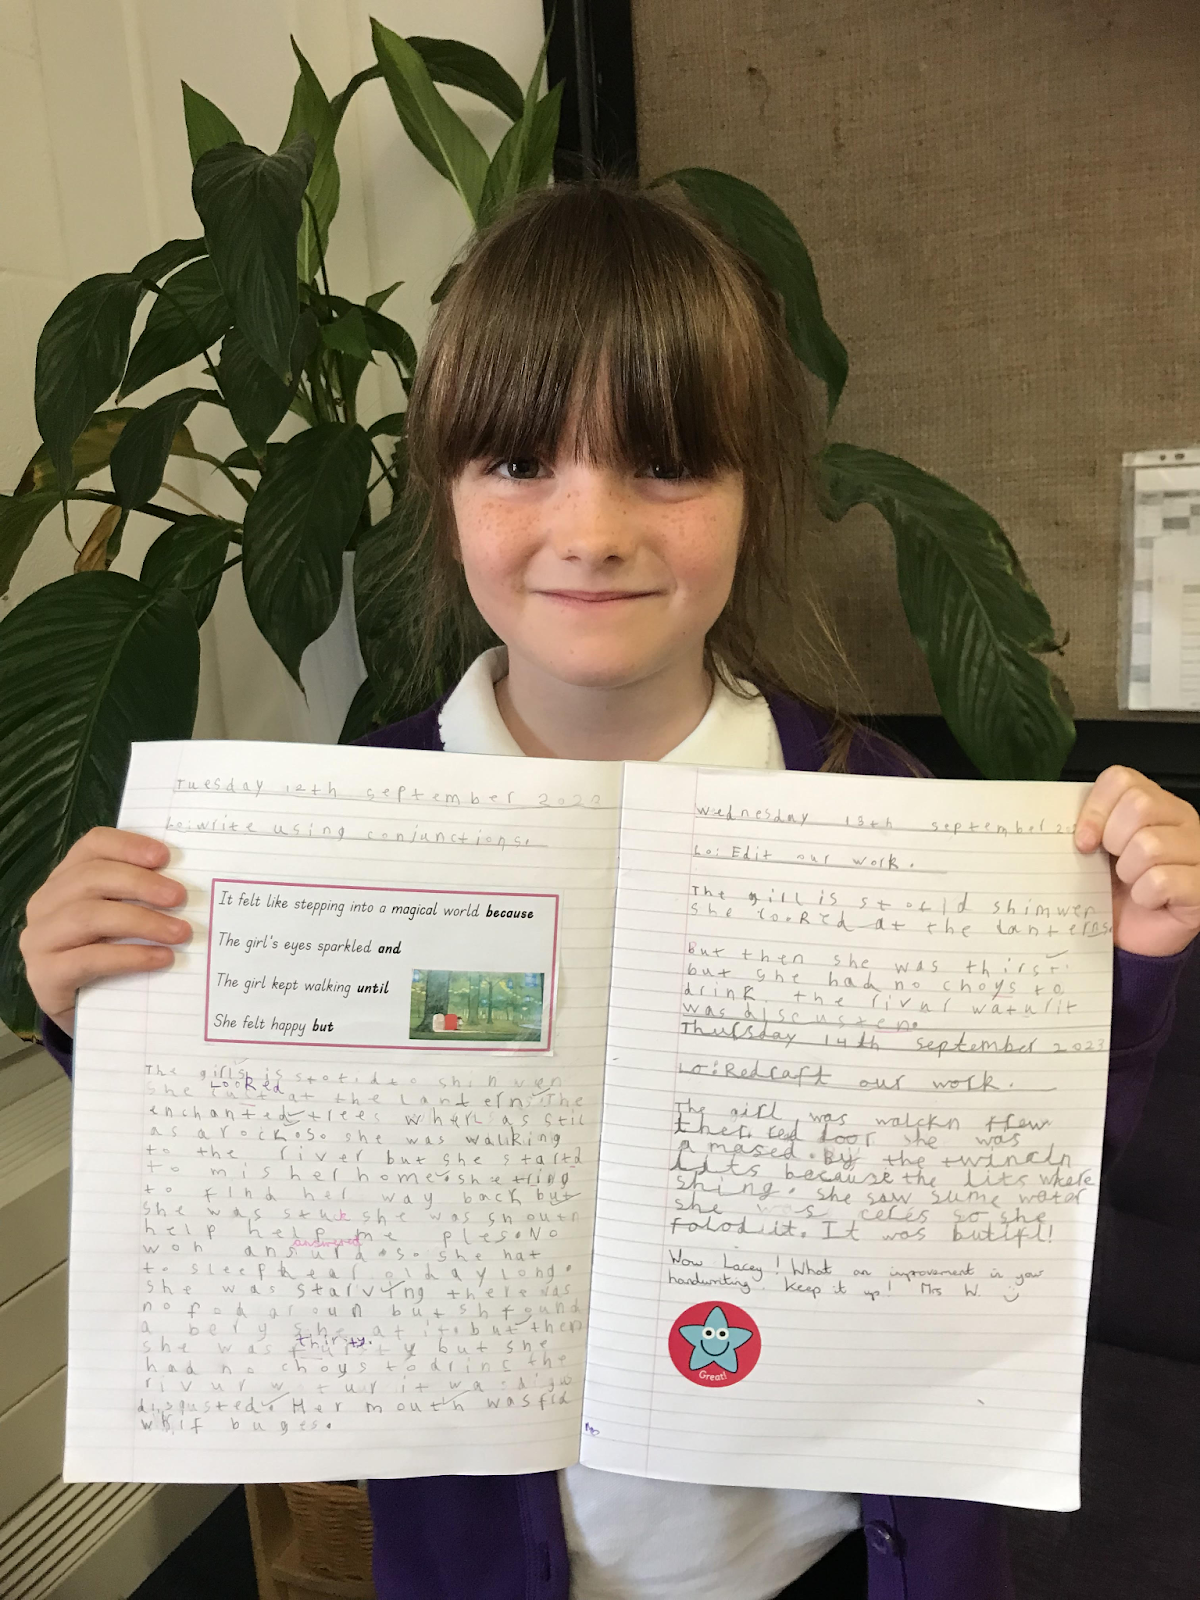 Tuesday 12th september 202
Lo: write using conjunctions.
It felt like stepping into a magical world because
The girl's eyes sparkled and
The girl kept walking until
She felt happy but
The girl is
she LooRed at the Lanterns. The
enchanted trees
as a rock. so she was walking
to the river but she startd
to mis her home. she tring
to find her way back but
she was stuck she was shoutn
help help me ples. No
answered
woh ansurd. so she hat
to sleep hear oldaylong.
she was starving there was
no fod aroun but sh found
a bery she at it. but then
thirsty.
she was but she
had no choys todrinc the
rivur it
disgusted. Her mouth was fld
buges.
Wednesday 13th september 20
Lo: Edit our work.
The girll is shimwer
She looRed at the lanterns.
But then she was thirst
but she had no choys to
drink. the rivur waturit
was discusten.
Thursday 14th september 2023
Lo: Redraft our work.
The girl was walckn
ther red door she was
amased by the twincln
lits because the lits where
shing. she saw sume water
she so she
folod it. It was butifl!
Wow Lacey! What an improvement in your
handwriting. Keep it up! Mrs W.
Great!